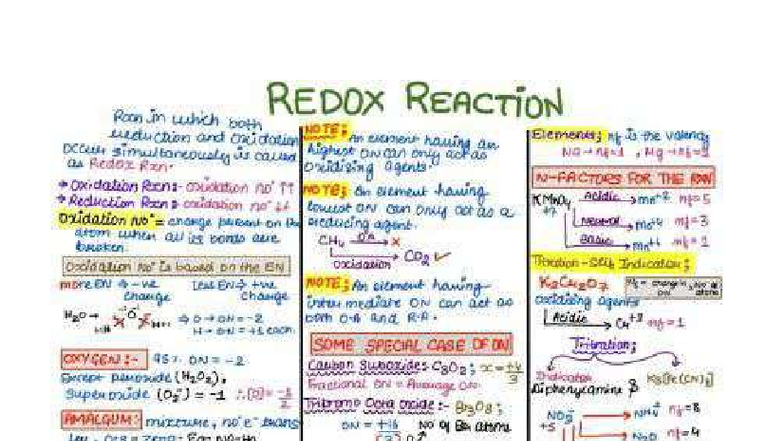 REDOX REACTION
Rxn in which both
reduction and Oxidation
occur simultaneously is called
as Redox Rxn.
→ Oxidation Rxn:- oxidation no ↑↑
→ Reduction Rxn:- oxidation no ↓↓
Oxidation No = change present on the
atom when all its bonds are
broken.
Oxidation No is based on the EN
more EN ⇒ -ve
change
less EN ⇒ +ve
change
H₂O →
⇒ O → ON = -2
H → ON = +1 each
OXYGEN:- 95% ON = -2
Except peroxide (H₂O₂),
Superoxide (O₂⁻) = -1 ∴ [O] = -1/2
AMALGUM: mixture, no e⁻ trans
NOTE: An element having an
highest ON can only act as
oxidising agents.
NOTE: An element having
lowest ON can only act as a
reducing agent.
CH₄ → ×
Oxidation → CO₂ ✓
NOTE: An element having
intermediate ON can act as
both O.A and R.A.
SOME SPECIAL CASE OF ON
Carbon Suboxides- C₃O₂; x = +4/3
Fractional ON = Average ON
Tribromo Octa oxide:- Br₃O₈;
ON = +16 No Of Br atoms
Elements; nf is the valency
Na → nf = 1 , Mg → nf = 1
N-FACTORS FOR THE RXN
KMnO₄ Acidic → mn⁺² nf = 5
+7
Neutral → mn⁺⁴ nf = 3
Basic → mn⁺⁶ nf = 1
Titration - Self Indication;
K₂Cr₂O₇
oxidising agents
Acidic → Cr⁺³ nf = 1
Titration;
Indicator
Diphenycamine & K₃[Fe(CN)₆]
NO₃⁻ → NH₄⁺ nf = 8
+5
N₂O nf = 4